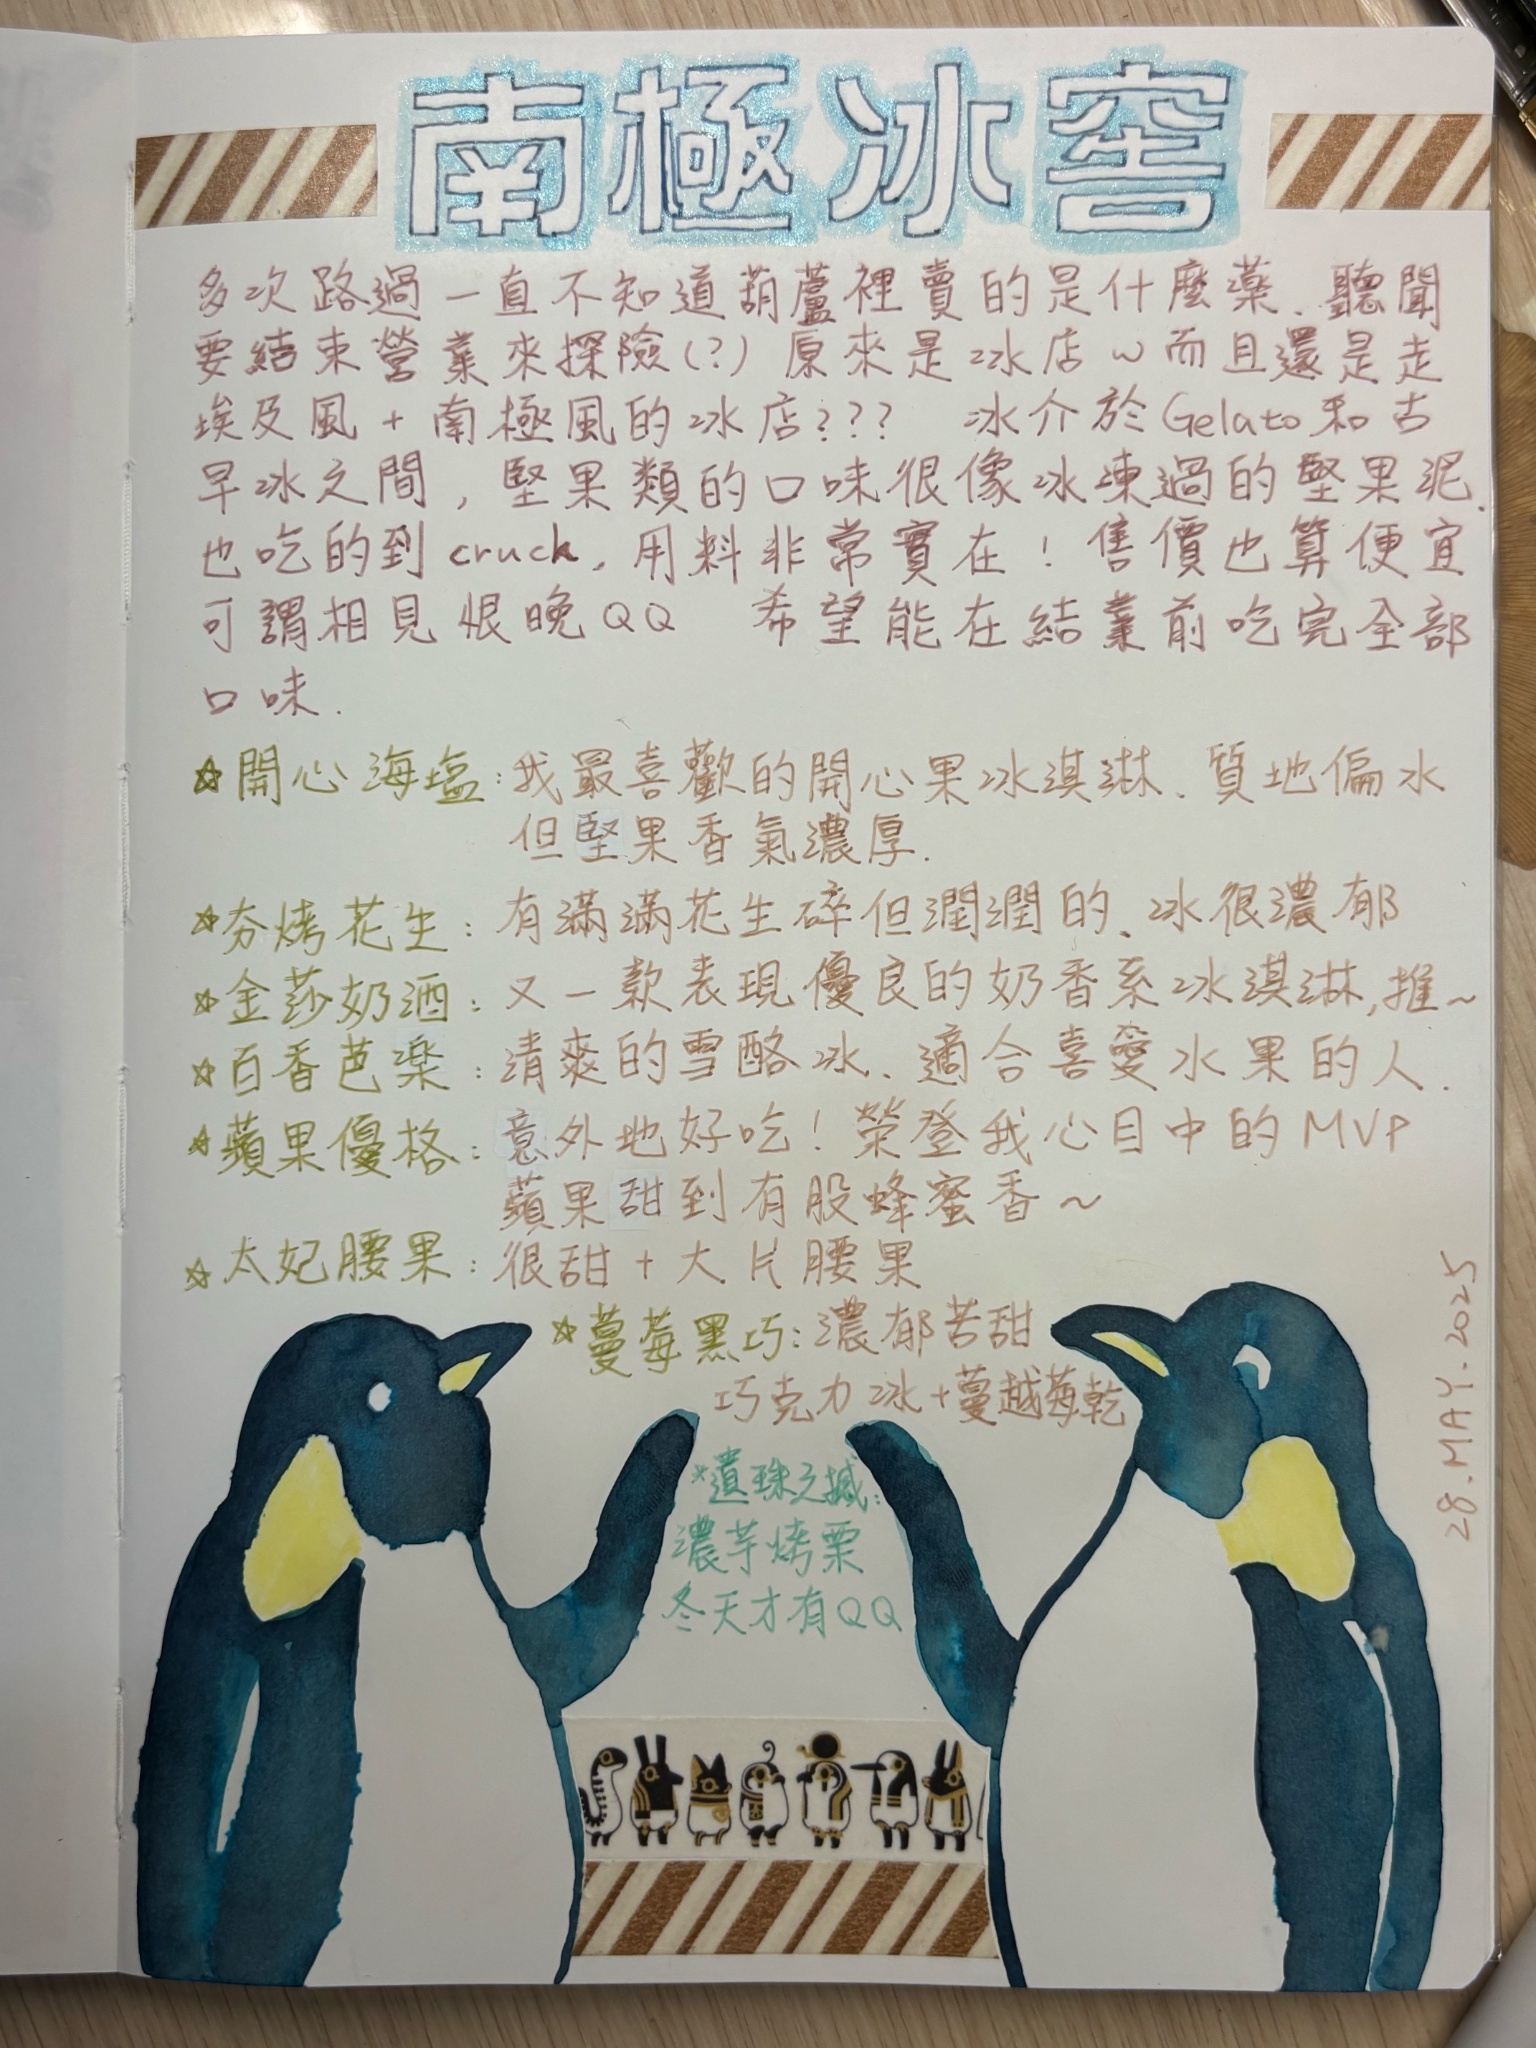 南極冰窖
多次路過一直不知道葫蘆裡賣的是什麼藥、聽聞
要結束營業來探險(?) 原來是冰店~而且還是走
埃及風+南極風的冰店??? 冰介於Gelato和古
早冰之間, 堅果類的口味很像冰凍過的堅果泥.
也吃的到cruch, 用料非常實在! 售價也算便宜
可謂相見恨晚QQ 希望能在結業前吃完全部
口味.
☆開心海塩:我最喜歡的開心果冰淇淋、質地偏水
但堅果香氣濃厚.
☆夯烤花生:有滿滿花生碎但潤潤的、冰很濃郁
☆金莎奶酒:又一款表現優良的奶香系冰淇淋,推~
☆百香芭樂:清爽的雪酪冰、適合喜愛水果的人.
☆蘋果優格:意外地好吃!榮登我心目中的MVP
蘋果甜到有股蜂蜜香~
☆太妃腰果:很甜+大片腰果
☆蔓莓黑巧:濃郁苦甜
巧克力冰+蔓越莓乾
*遺珠之撼:
濃芋烤栗
冬天才有QQ
28.MAY.2025